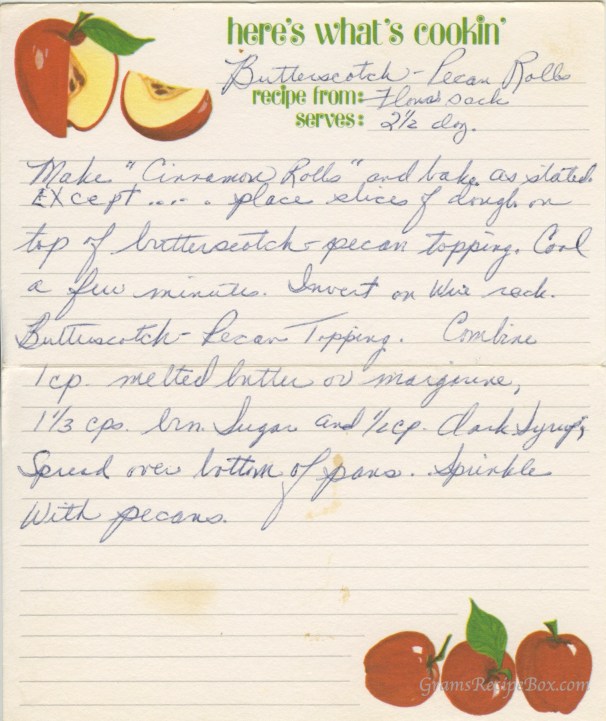 here's what's cookin'
Butterscotch-Pecan Rolls
recipe from: Flour sack
serves: 2½ doz.
Make "Cinnamon Rolls" and bake as stated
EXcept .... place slices of dough on
top of butterscotch-pecan topping. Cool
a few minutes. Invert on wire rack.
Butterscotch-Pecan Topping. Combine
1 cp. melted butter or margarine,
1⅓ cps. brn. Sugar and ½ cp. dark Syrup,
Spread over bottom of pans. Sprinkle
With pecans.
GramsRecipeBox.com